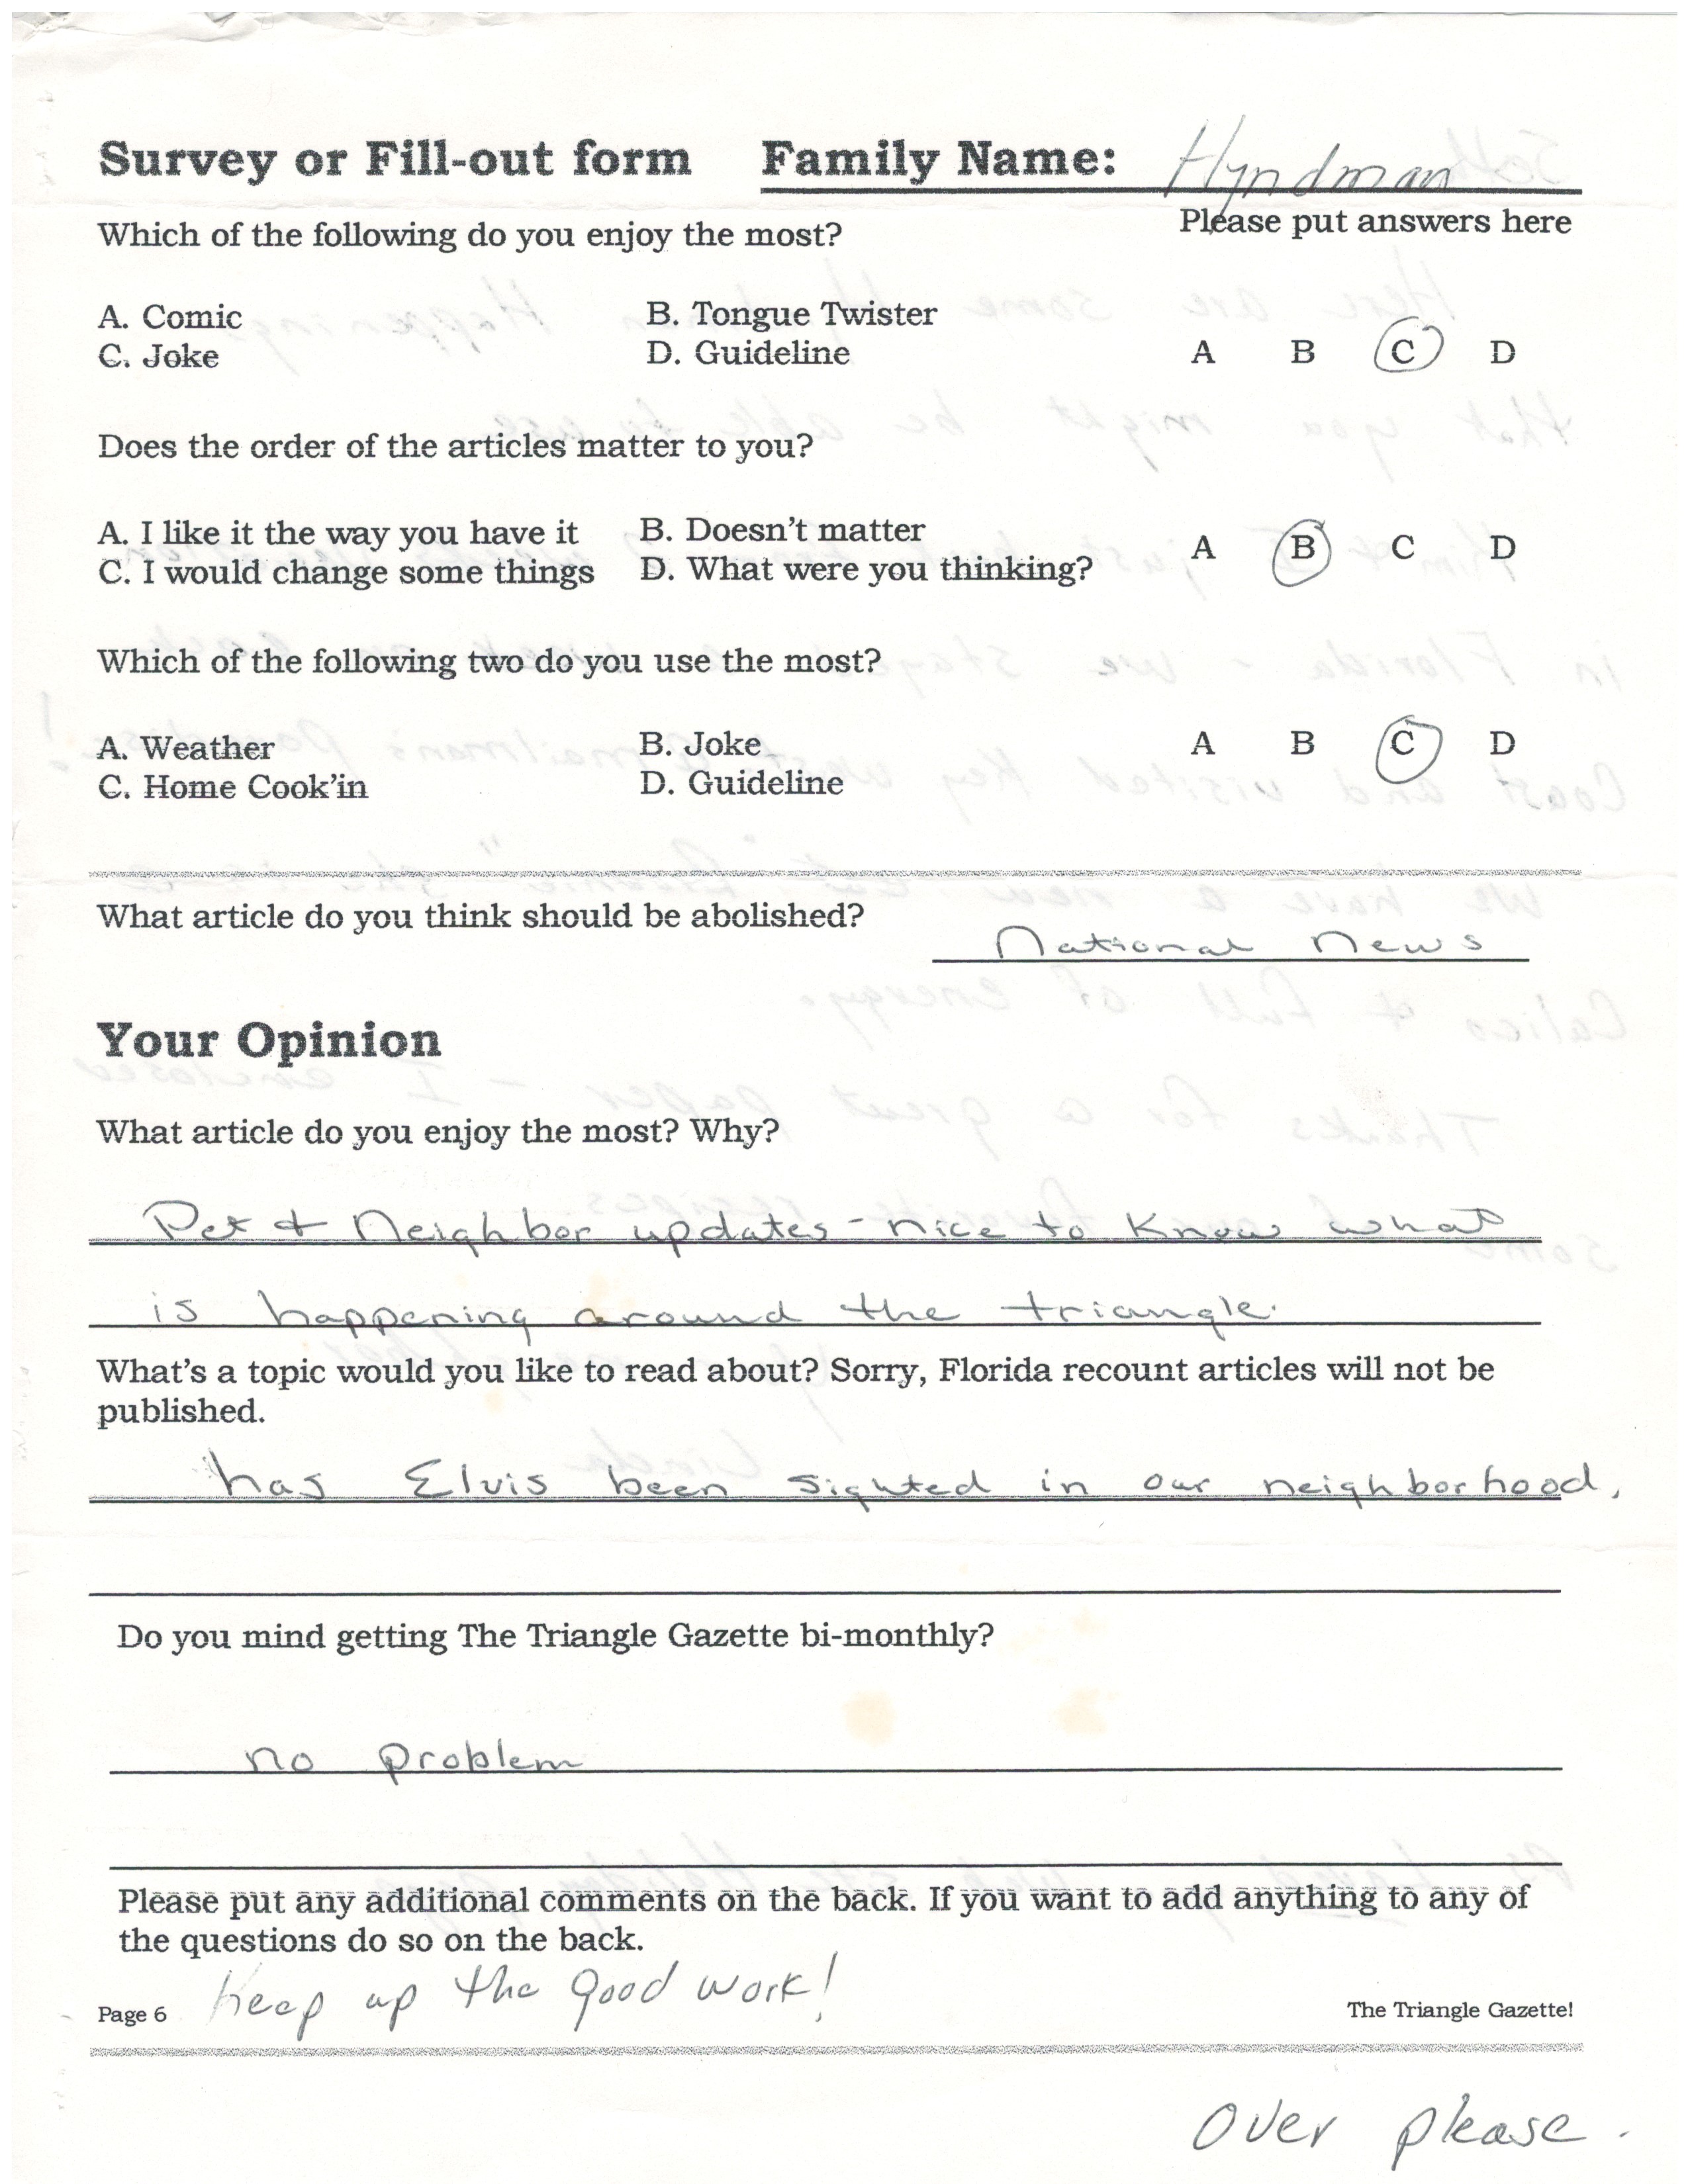 Survey or Fill-out form Family Name: Hyndman
Which of the following do you enjoy the most? Please put answers here
A. Comic B. Tongue Twister
C. Joke D. Guideline A B C D
Does the order of the articles matter to you?
A. I like it the way you have it B. Doesn't matter
C. I would change some things D. What were you thinking? A B C D
Which of the following two do you use the most?
A. Weather B. Joke A B C D
C. Home Cook'in D. Guideline
What article do you think should be abolished? National News
Your Opinion
What article do you enjoy the most? Why?
Pet + Neighbor updates - nice to know what
is happening around the triangle.
What's a topic would you like to read about? Sorry, Florida recount articles will not be
published.
has Elvis been sighted in our neighborhood,
Do you mind getting The Triangle Gazette bi-monthly?
no problem
Please put any additional comments on the back. If you want to add anything to any of
the questions do so on the back.
Keep up the good work!
Page 6 The Triangle Gazette!
over please.